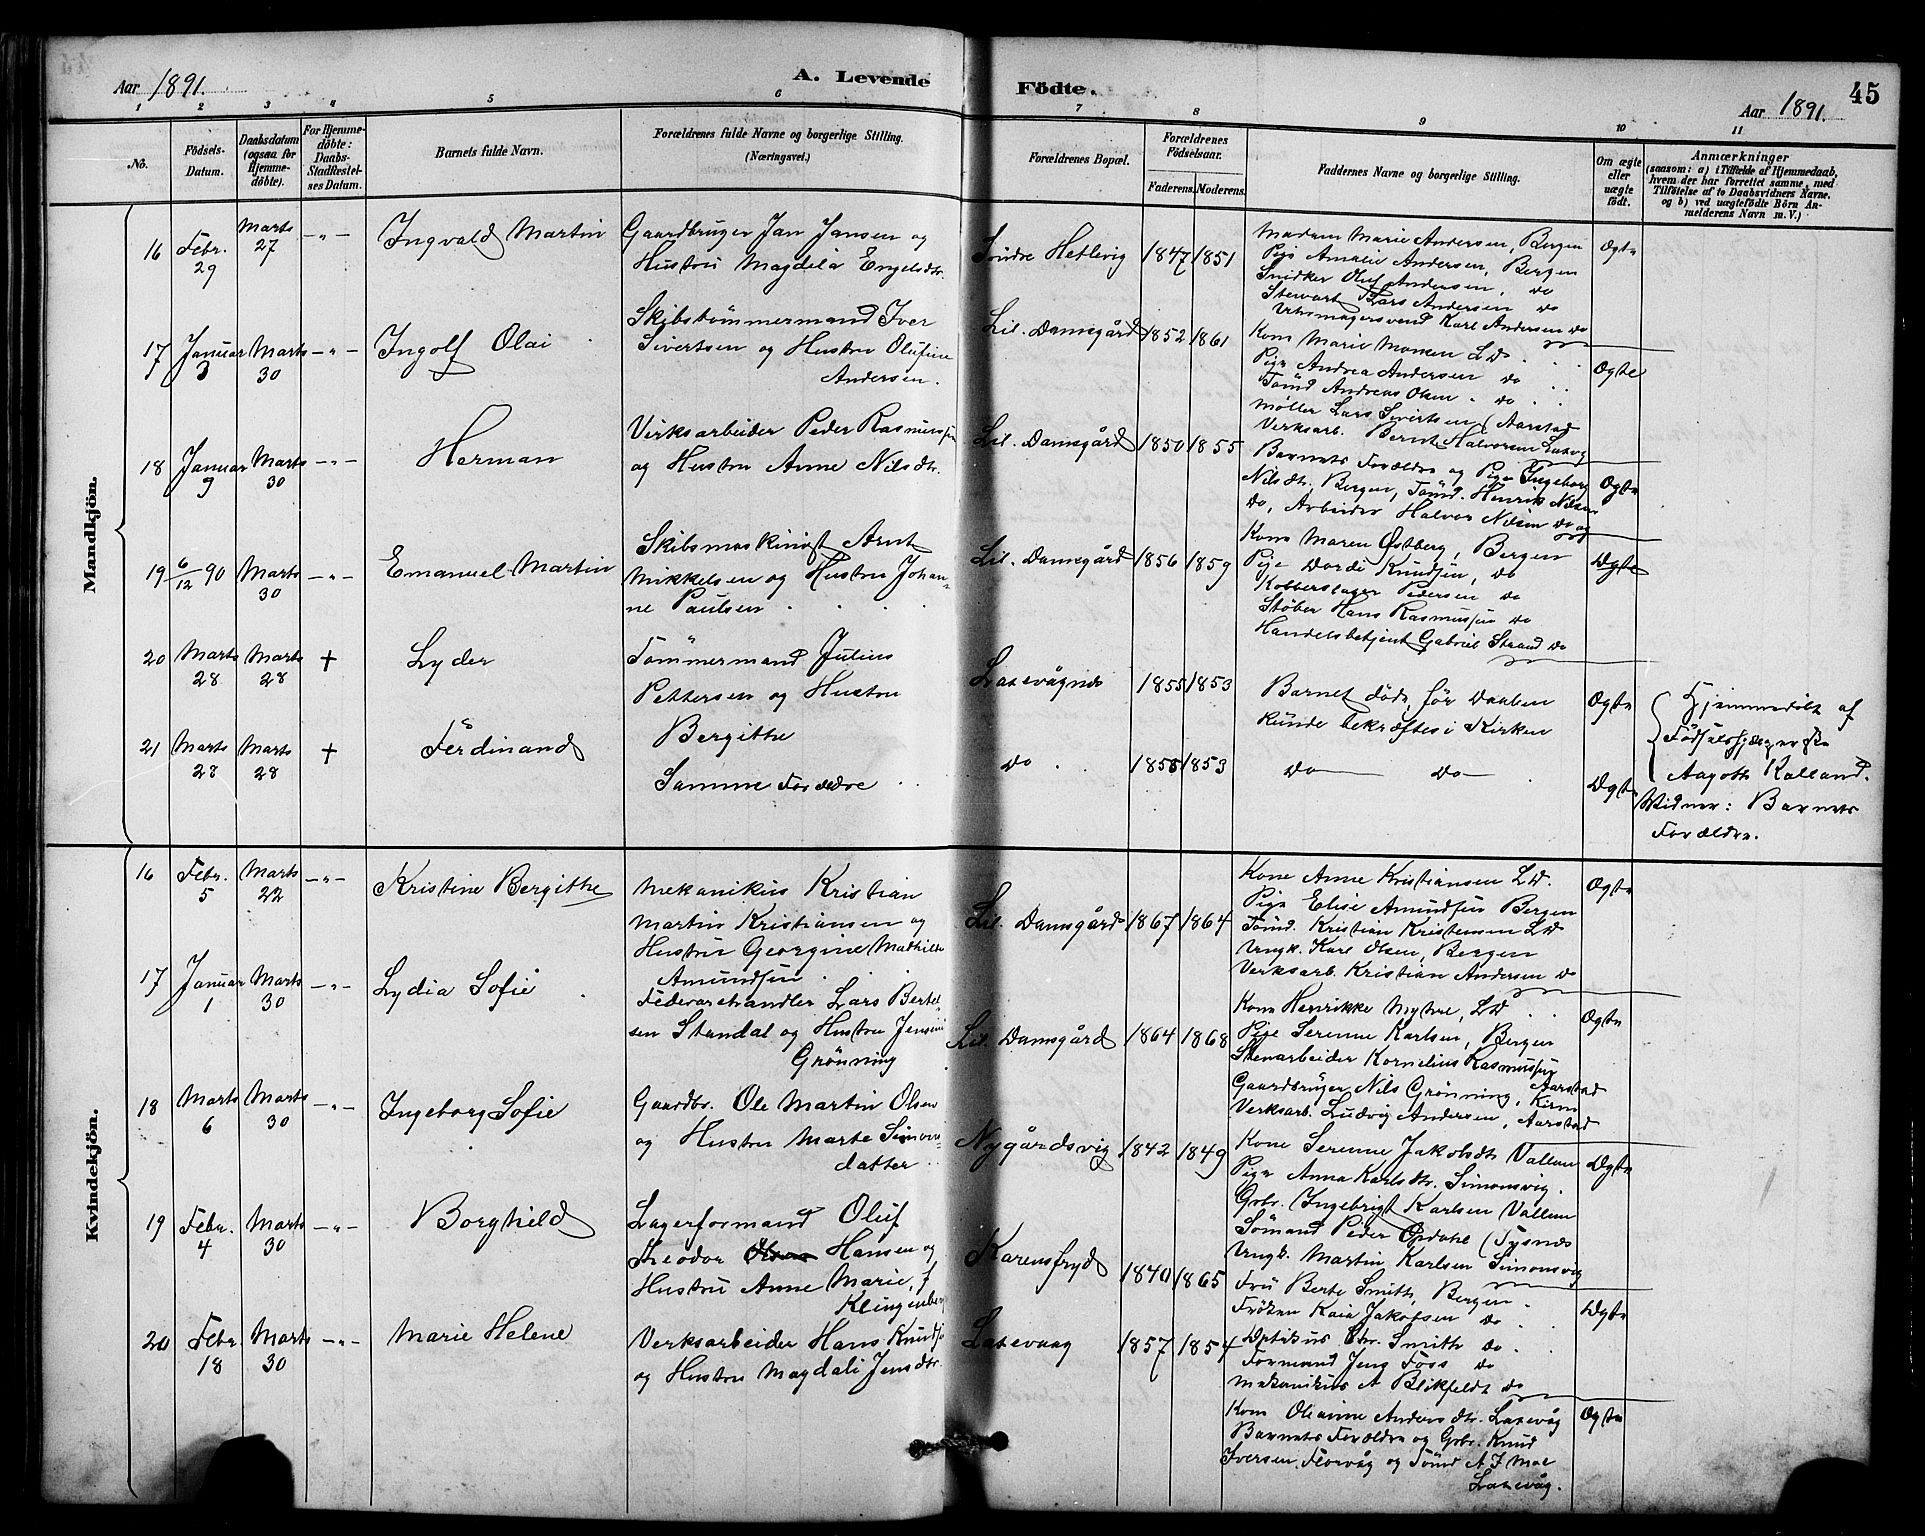 Aar 1891.
A. Levende
Födte.
45
Aar 1891.
1 2 3 4 5 6 7 8 9 10 11
No.
Födsels-
Datum.
Daabsdatum
(ogsaa for
Hjemme-
döbte).
For Hjemme-
döbte:
Daabs-
Stadfæstel-
ses Datum.
Barnets fulde Navn.
Forældrenes fulde Navne og borgerlige Stilling.
(Næringsvei.)
Forældrenes Bopæl.
Forældrenes
Födselsaar.
Faderens. Moderens.
Faddernes Navne og borgerlige Stilling.
Om ægte
eller
uægte
födt.
Anmærkninger
(saasom: a) i Tilfælde af Hjemmedaab,
hvem der har forrettet samme, med
Tilföielse af to Daabsvidners Navne,
og b) ved uægtefödte Börn An-
melderens Navn m. V.)
Mandkjön.
16 Febr. 29 Marts 27 -"- Ingvald Martin
Gaardbruger Jan Jansen og
Hustru Magdela Engelsdtr.
Söndre Hetlevig 1847 1851
Madam Marie Andersen, Bergen
Pige Amalie Andersen, Bergen
Snidker Oluf Andersen, do
Stewart Lars Andersen do
Uhrmagersvend Karl Andersen do
Ægte
17 Januar 3 Marts 30 -"- Ingolf Olai
Skibstömmermand Iver
Sivertsen og Hustru Olufine
Andersen.
Lil. Damsgård 1852 1861
Kone Marie Monsen LD
Pige Andrea Andersen do
Tömd Andreas Olsen do
Möller Lars Sivertsen (Aarstad
Verksarb. Bernt Halvorsen Laxvg
Ægte
18 Januar 9 Marts 30 -"- Herman
Verksarbeider Peder Rasmussen
og Hustru Anne Nilsdtr.
Lil. Damsgård 1850 1855
Barnets Forældre og Pige Ingeborg
Nilsdtr, Bergen, Tömd. Henrik Nilsen
do, Arbeider Halvor Nilsen do og
Ægte
19 6/12 90 Marts 30 -"- Emanuel Martin
Skibsmaskinist Arnt
Mikkelsen og Hustru Johan-
ne Paulsen
Lil. Damsgård 1856 1859
Kone Maren Østberg, Bergen
Pige Dordi Knudsen, do
Kobberslager Pedersen do
Støber Hans Rasmussen do
Handelsbetjent Gabriel Strand do
Ægte
20 Marts 28 Marts 28 † Lyder
Tömmermand Julius
Pettersen og Hustru
Bergithe
Laxevågnes 1855 1853
Barnet döde, för Daaben
kunde bekræftes i Kirken
Ægte
Hjemmedöbt af
Födselshjælperske
Aagoth Kalland.
Vidner: Barnets
Forældre.
21 Marts 28 Marts 28 † Ferdinand
Samme Forældre
do 1855 1853
do do
Ægte
Kvindekjön.
16 Febr. 5 Marts 22 -"- Kristine Bergithe
Mekanikus Kristian
Martin Kristiansen og
Hustru Georgine Mathilde
Amundsen
Lil. Damsgård 1867 1864
Kone Anne Kristiansen LD.
Pige Elise Amundsen Bergen
Tömd. Kristian Kristensen LD
Ungk. Karl Olsen, Bergen
Verksarb. Kristian Andersen do
Ægte
17 Januar 1 Marts 30 -"- Lydia Sofie
Fedevarehandler Lars Bertel-
sen Standal og Hustru Jensine
Grönning
Lil. Damsgård 1864 1868
Kone Henrikke Myhre, LD
Pige Serenne Karlsen, Bergen
Stenarbeider Kornelius Rasmussen
Gaardbruger Nils Grönning, Aarstad
Verksarb. Ludvig Andersen, Aarstad
Ægte
18 Marts 6 Marts 30 -"- Ingeborg Sofie
Gaardbr. Ole Martin Olsen
og Hustru Marte Simons-
datter
Nygårdsvig 1842 1849
Kone Serenne Jakobsdtr Vallum
Pige Anna Karlsdtr. Simonsvig.
Grbr. Ingebrigt Karlsen Vallum
Sömand Peder Opdahl (Tysnæs
Ungk. Martin Karlsen Simonsvig
Ægte
19 Febr. 4 Marts 30 -"- Borghild
Lagerformand Oluf
Theodor Hansen og
Hustru Anne Marie, f
Klingenberg
Karensfryd 1840 1865
Fru Berte Smith, Bergen
Fröken Kaia Jakobsen do
Optikus Chr. Smith do
Formand Jens Foss do
Mekanikus A Blikfeldt do
Ægte
20 Febr. 18 Marts 30 -"- Marie Helene
Verksarbeider Hans Knudsen
og Hustru Magdali Jensdtr.
Laxevaag 1857 1854
Kone Oleanne Andersdtr. Laxevåg
Barnets Forældre og Grbr. Knud
Iversen, Florvåg og Tömd A. J. Moe
Laxevåg.
Ægte